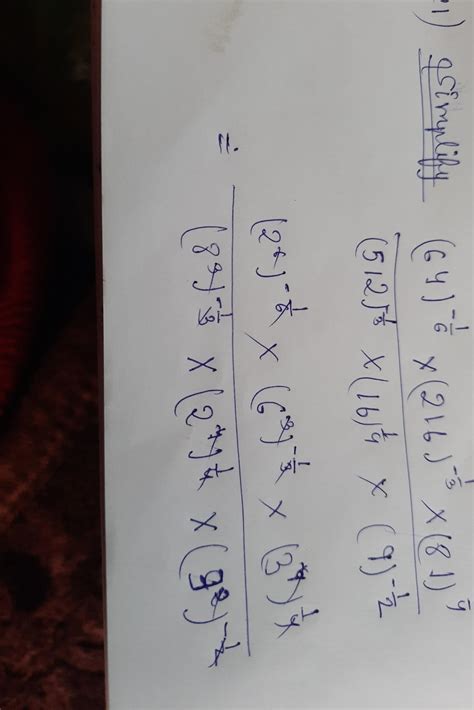 :1) Simplify
(64)^-1/6 × (216)^-1/3 × (81)^1/4
(512)^-1/3 × (16)^1/4 × (9)^-1/2
= (2^6)^-1/6 × (6^3)^-1/3 × (3^4)^1/4
(8^3)^-1/3 × (2^4)^1/4 × (3^2)^-1/2